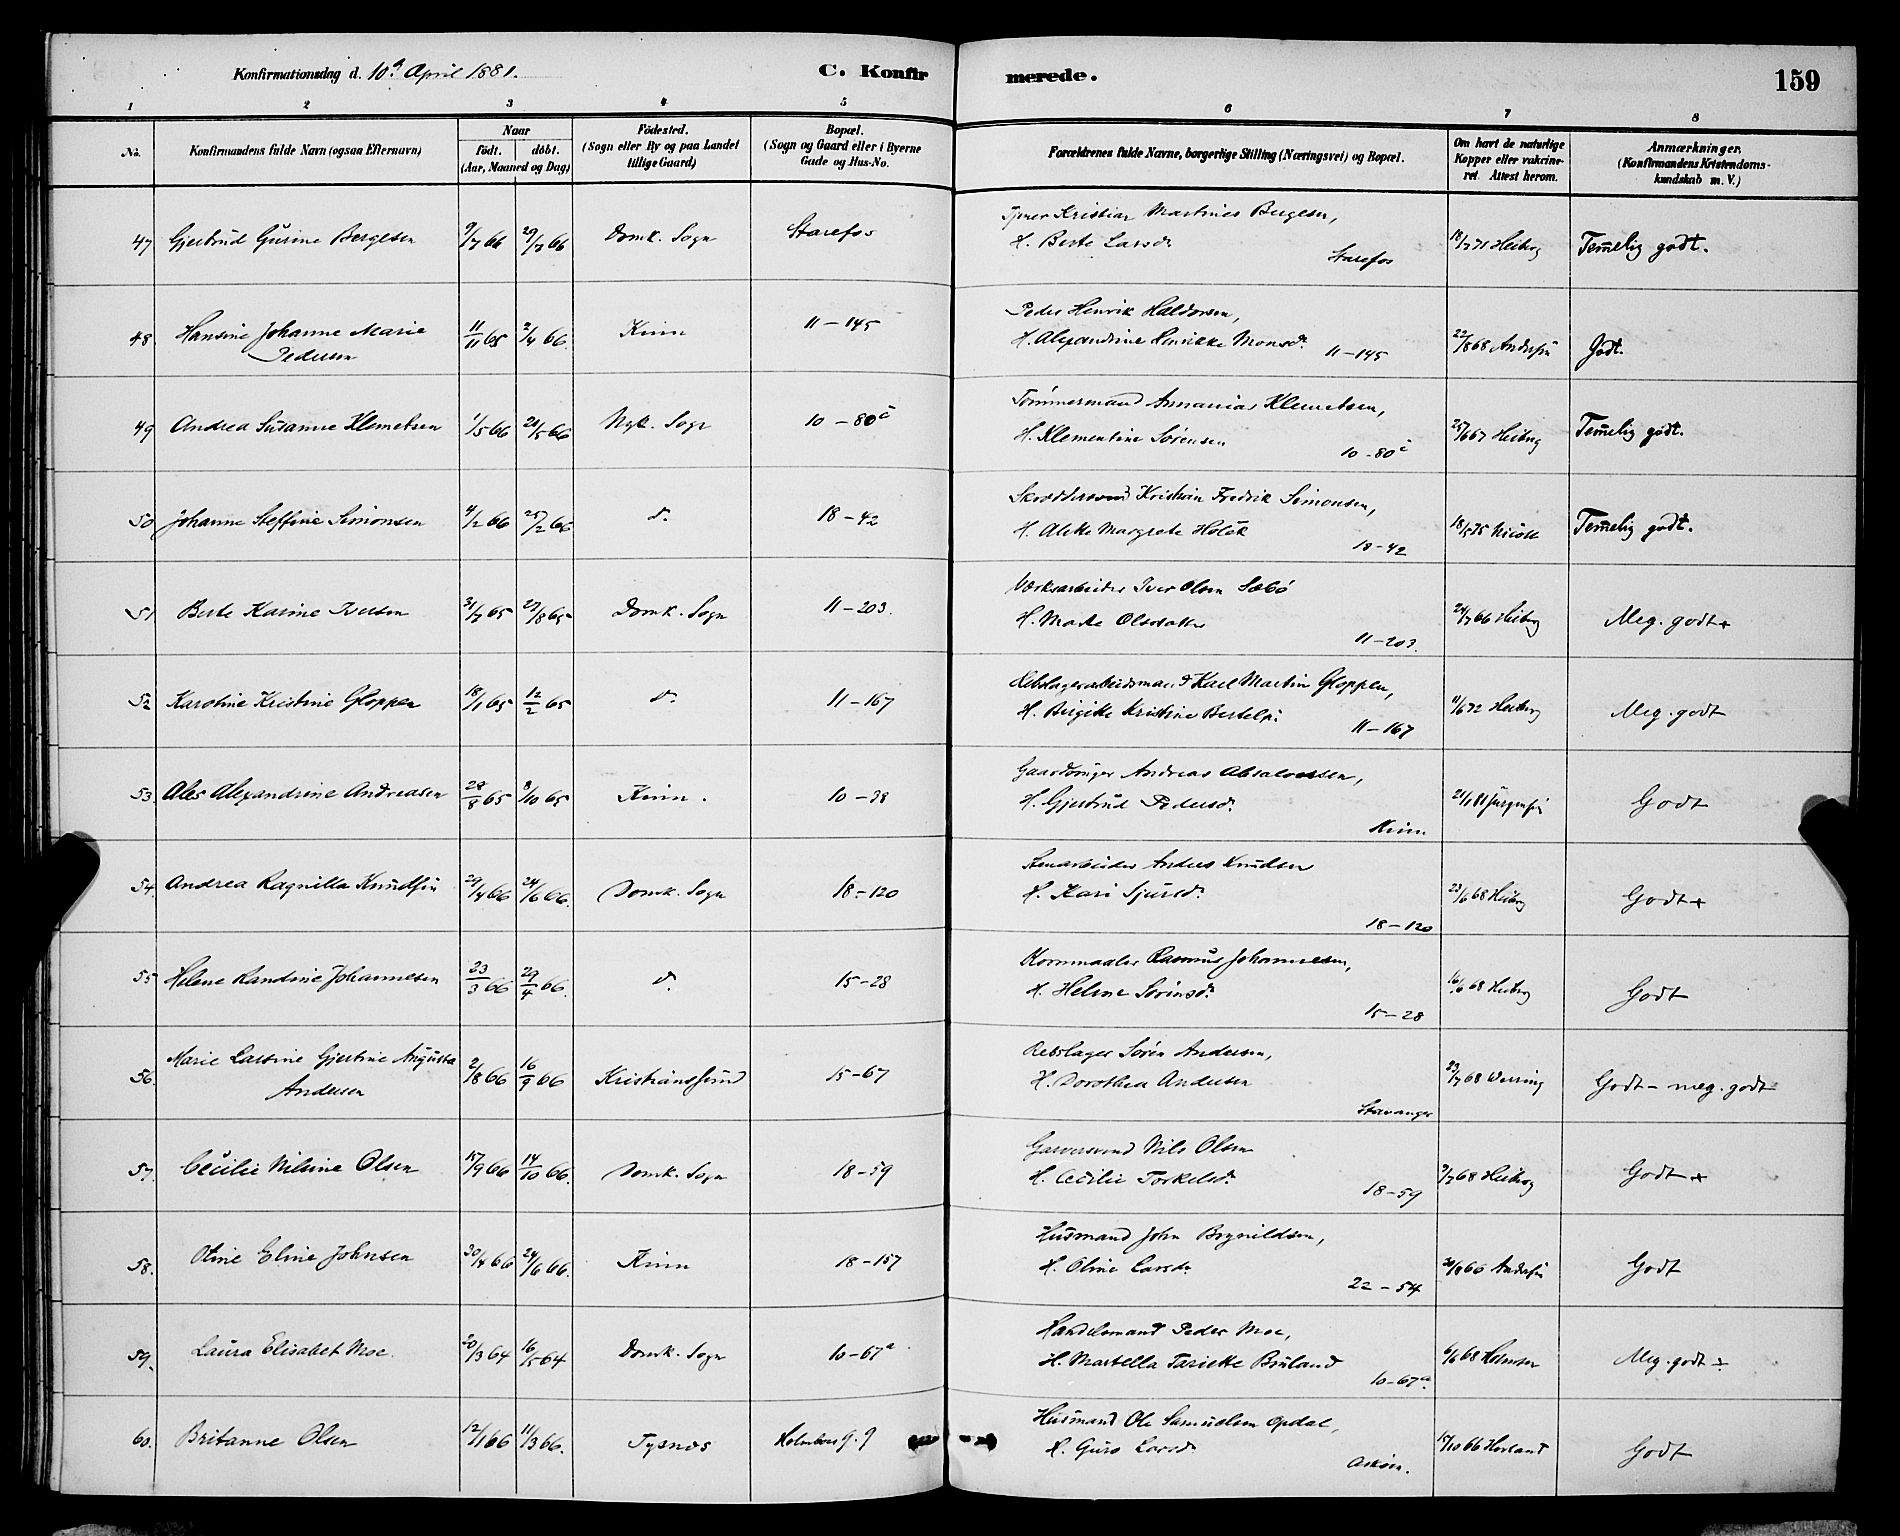 Konfirmationsdag d. 10d April 1881.
C. Konfirmerede.
159
1 2 3 4 5 6 7 8
No.
Konfirmandens fulde Navn (ogsaa Efternavn)
Naar
födt. döbt.
(Aar, Maaned og Dag)
Födested.
(Sogn eller By og paa Landet
tillige Gaard)
Bopæl.
(Sogn og Gaard eller i Byerne
Gade og Hus-No.
Forældrenes fulde Navne, borgerlige Stilling (Næringsvei) og Bopæl.
Om havt de naturlige
Kopper eller vakcine-
ret. Attest herom.
Anmærkninger.
(Konfirmandens Kristendoms-
kundskab m. V.)
47 Gjertrud Gurine Bergesen 9/7 66 29/7 66 Domk. Sogn Starefos Kristian Martines Bergesen, 18/7 71 Heiberg Temelig godt.
H. Berte Larsd.
Starefos
48. Hansine Johanne Marie 11/11 65 2/4 66. Kinn 11-145 Peder Henrik Haldorsen, 22/8 68 Andersen Godt.
Pedersen H. Alexandrine Henrikke Monsd. 11-145
49 Andrea Susanne Klemetsen 1/5 66 21/5 66 Nyk. Sogn 10-80c Tømmermand Annanias Klemetsen, 25/6 67 Heiberg Temelig godt.
H. Klementine Sørensen
10-80c
50 Johanne Steffine Simonsen 4/2 66 25/2 66 do. 18-42 Skræddersvend Kristian Fredrik Simonsen, 18/5 75 Temelig godt.
H. Margrete
18-42
51 Berte Karine Iversen 31/7 65 27/8 65 Domk. Sogn 11-203. Værksarbeider Iver Olsen Sæbø 24/7 66 Heiberg Meg. godt+
H. Marte Olsdatter
11-203.
52 Karoline Kristine Gloppen 18/1 65 12/2 65 do. 11-167 Rebslagerarbeidsmand Karl Martin Gloppen, 11/6 72 Heiberg Meg. godt
H. Birgitte Kristine Bertels.
11-167
53. Ales Alexandrine Andreasen 28/8 65 8/10 65 Kinn. 10-38 Gaardbruger Andreas Absalonsen, 21/1 81 Godt
H. Gjertrud Pedersd.
Kinn
54. Andrea Ragnilla Knudsen 29/4 66 24/6 66. Domk. Sogn 18-120 Stenarbeider Anders Knudsen 23/6 68 Heiberg Godt+
H. Kari Sjursd.
18-120
55 Helene Randine Johannesen 23/3 66 29/4 66. do. 15-28 Kornmaaler Rasmus Johannesen, 16/6 68 Heiberg Godt
H. Helene Sørinsd.
15-28
56. Marie Larsine Gjertine Augusta 2/8 66 16/9 66 Kristianssund 15-67 Rebslager Søren Andersen, 23/7 68 Werring Godt - meg. godt
Andersen H. Dorothea Andersen
Stavanger
57. Cecilie Nilsine Olsen 15/9 66 14/10 66. Domk. Sogn 18-59 Garversvend Nils Olsen 3/7 68 Heiberg Godt+
H. Cecilie Torkelsd.
18-59
58. Oline Eline Johnsen 30/4 66 24/6 66. Kinn 18-157 Husmand John Brynildsen, 30/8 66 Andersen Godt
H. Oline Larsd.
22-54
59. Laura Elisabet Moe. 20/3 64 16/5 64 Domk. Sogn 10-67a Handelsmand Peder Moe, 6/6 68 Meg. godt÷
H. Martella Tarielte Bruland
10-67a.
60. Britanne Olsen 12/1 66 11/3 66. Tysnæs Husmand Ole Samuelsen Opdal, 15/10 66 Godt
H. Guro Larsd.
Askøen.